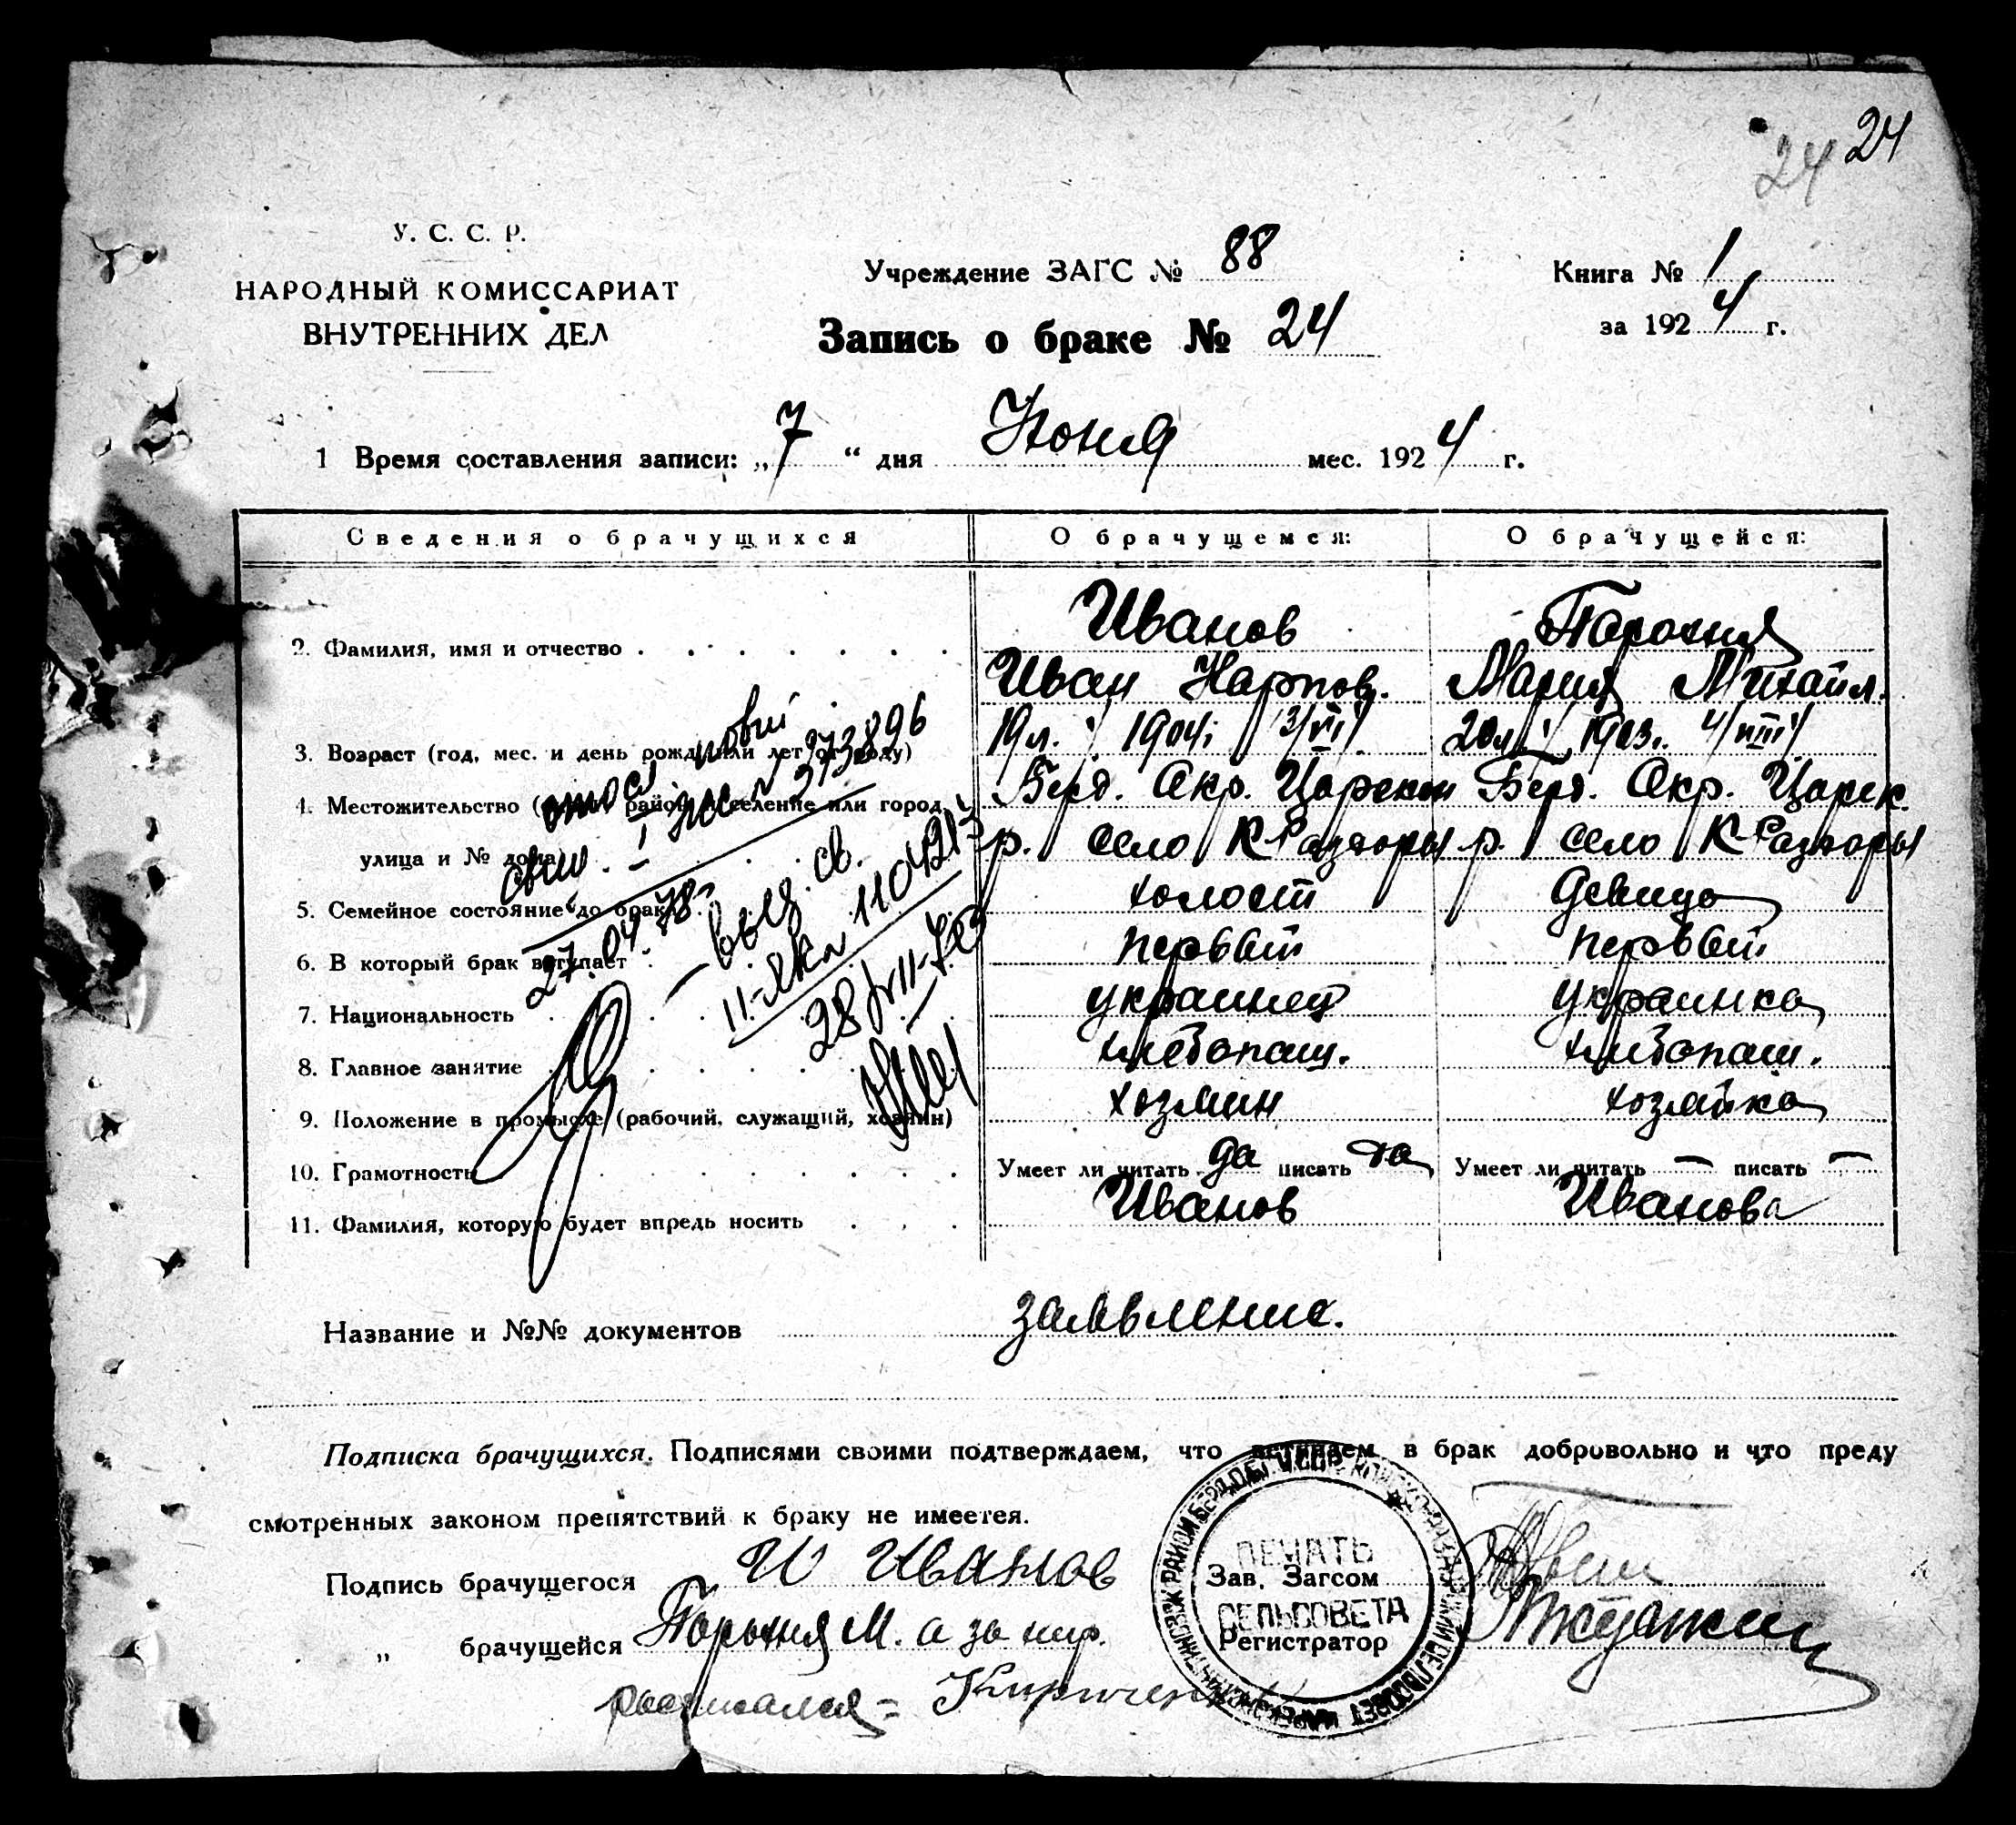 24 24
У. С. С. Р.
НАРОДНЫЙ КОМИССАРИАТ
ВНУТРЕННИХ ДЕЛ
Учреждение ЗАГС № 88
Запись о браке № 24
Книга № 1
за 1924 г.
1 Время составления записи: „7“ дня Июня мес. 1924 г.
Сведения о брачущихся О брачущемся: О брачущейся:
2. Фамилия, имя и отчество Иванов
Иван Карпов. Мария Михайл.
3. Возраст (год, мес. и день рожд. или лет от роду) 19 л. 1904 20 л. 1903
4. Местожительство ( район, селение или город, Берд. Окр. Царекон Берд. Окр. Царек.
улица и № дома р. село К-Раздоры р. село К-Раздоры
5. Семейное состояние до брака холост девица
6. В который брак вступает первый первый
7. Национальность украинец украинка
8. Главное занятие хлебопаш. хлебопаш.
9. Положение в промысле (рабочий, служащий, хозяин) хозяин хозяйка
10. Грамотность Умеет ли читать да писать да Умеет ли читать — писать —
11. Фамилия, которую будет впредь носить Иванов Иванова
973896
27.04.78г
выд. св.
110421
Название и №№ документов заявление.
Подписка брачущихся. Подписями своими подтверждаем, что вступаем в брак добровольно и что преду
смотренных законом препятствий к браку не имеется.
Подпись брачущегося И Иванов
„ брачущейся М. а за нир.
росписался =
ПЕЧАТЬ
Зав. Загсом
СЕЛЬСОВЕТА
Регистратор